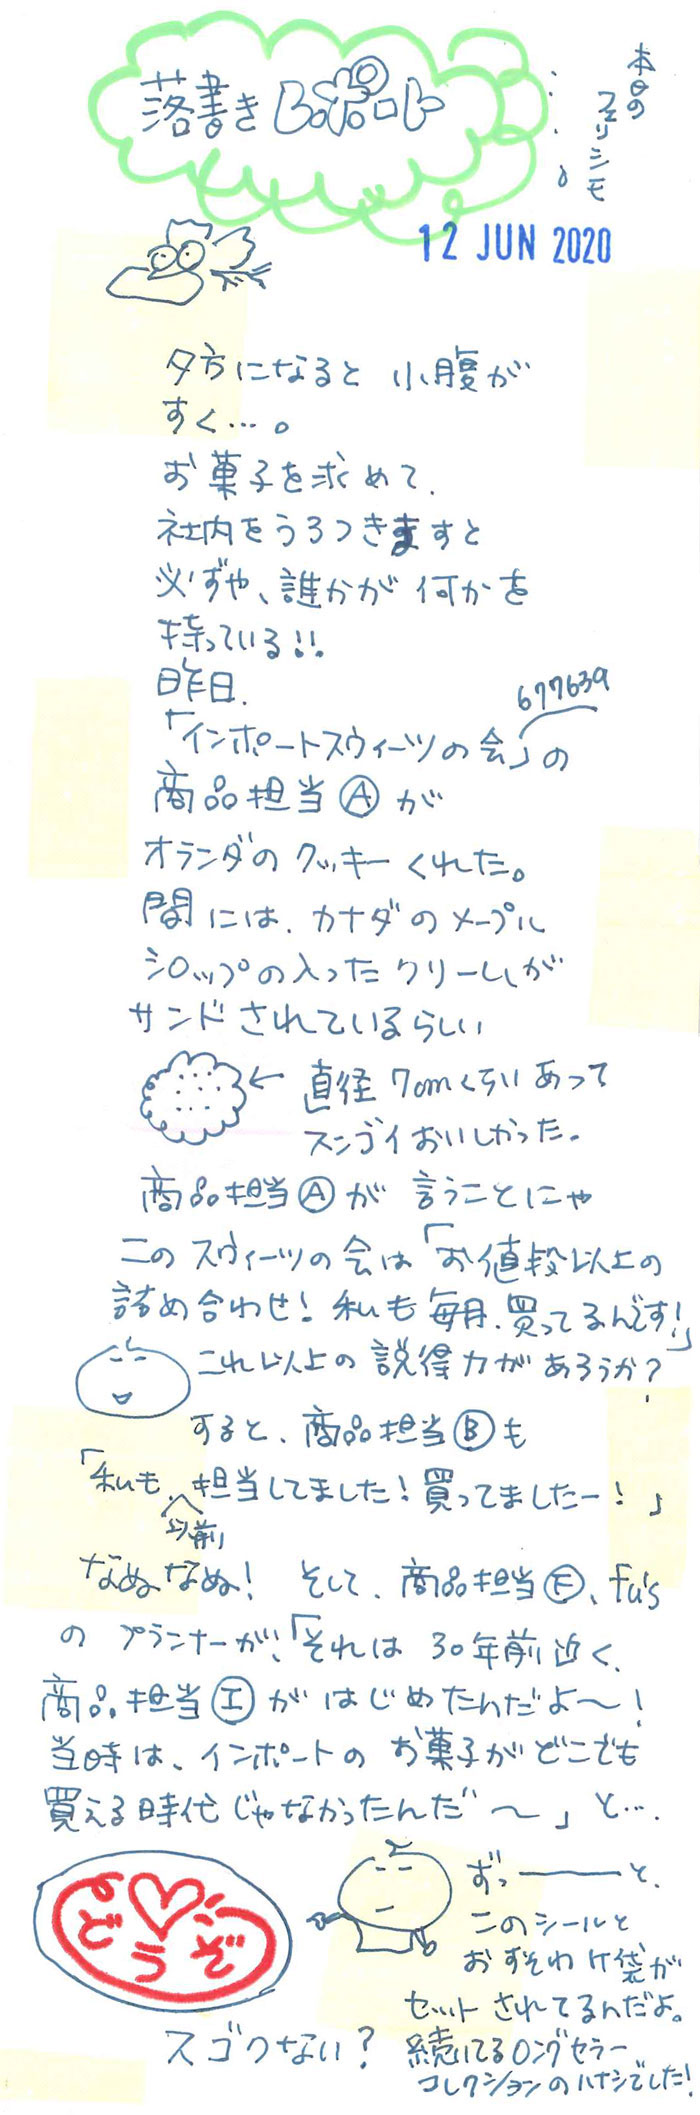 本日の
フェリシモ
落書きレポート
12 JUN 2020
夕方になると 小腹が
すく…。
お菓子を求めて、
社内をうろつきますと
必ずや、誰かが 何かを
持っている!!
昨日、
677639
「インポートスウィーツの会」の
商品担当Ⓐが
オランダのクッキーくれた。
間には、カナダのメープル
シロップの入ったクリームが
サンドされているらしい
← 直径 7cmくらいあって
スンゴイおいしかった。
商品担当Ⓐが 言うことにゃ
このスウィーツの会は「お値段以上の
詰め合わせ!私も毎月、買ってるんです!」
これ以上の説得力があろうか?
すると、商品担当Ⓑも
「私も、担当してました!買ってましたー!」
以前
なぬなぬ! そして、商品担当Ⓕ、fu's
の プランナーが、「それは 30年前近く、
商品担当Ⓘがはじめたんだよ〜!
当時は、インポートの お菓子がどこでも
買える時代じゃなかったんだ〜」と…、
ずっ―――と、
このシールと
おすそわけ袋が
セットされてるんだよ。
どうぞ
スゴクない? 続いてるロングセラー
コレクションのハナシでした!